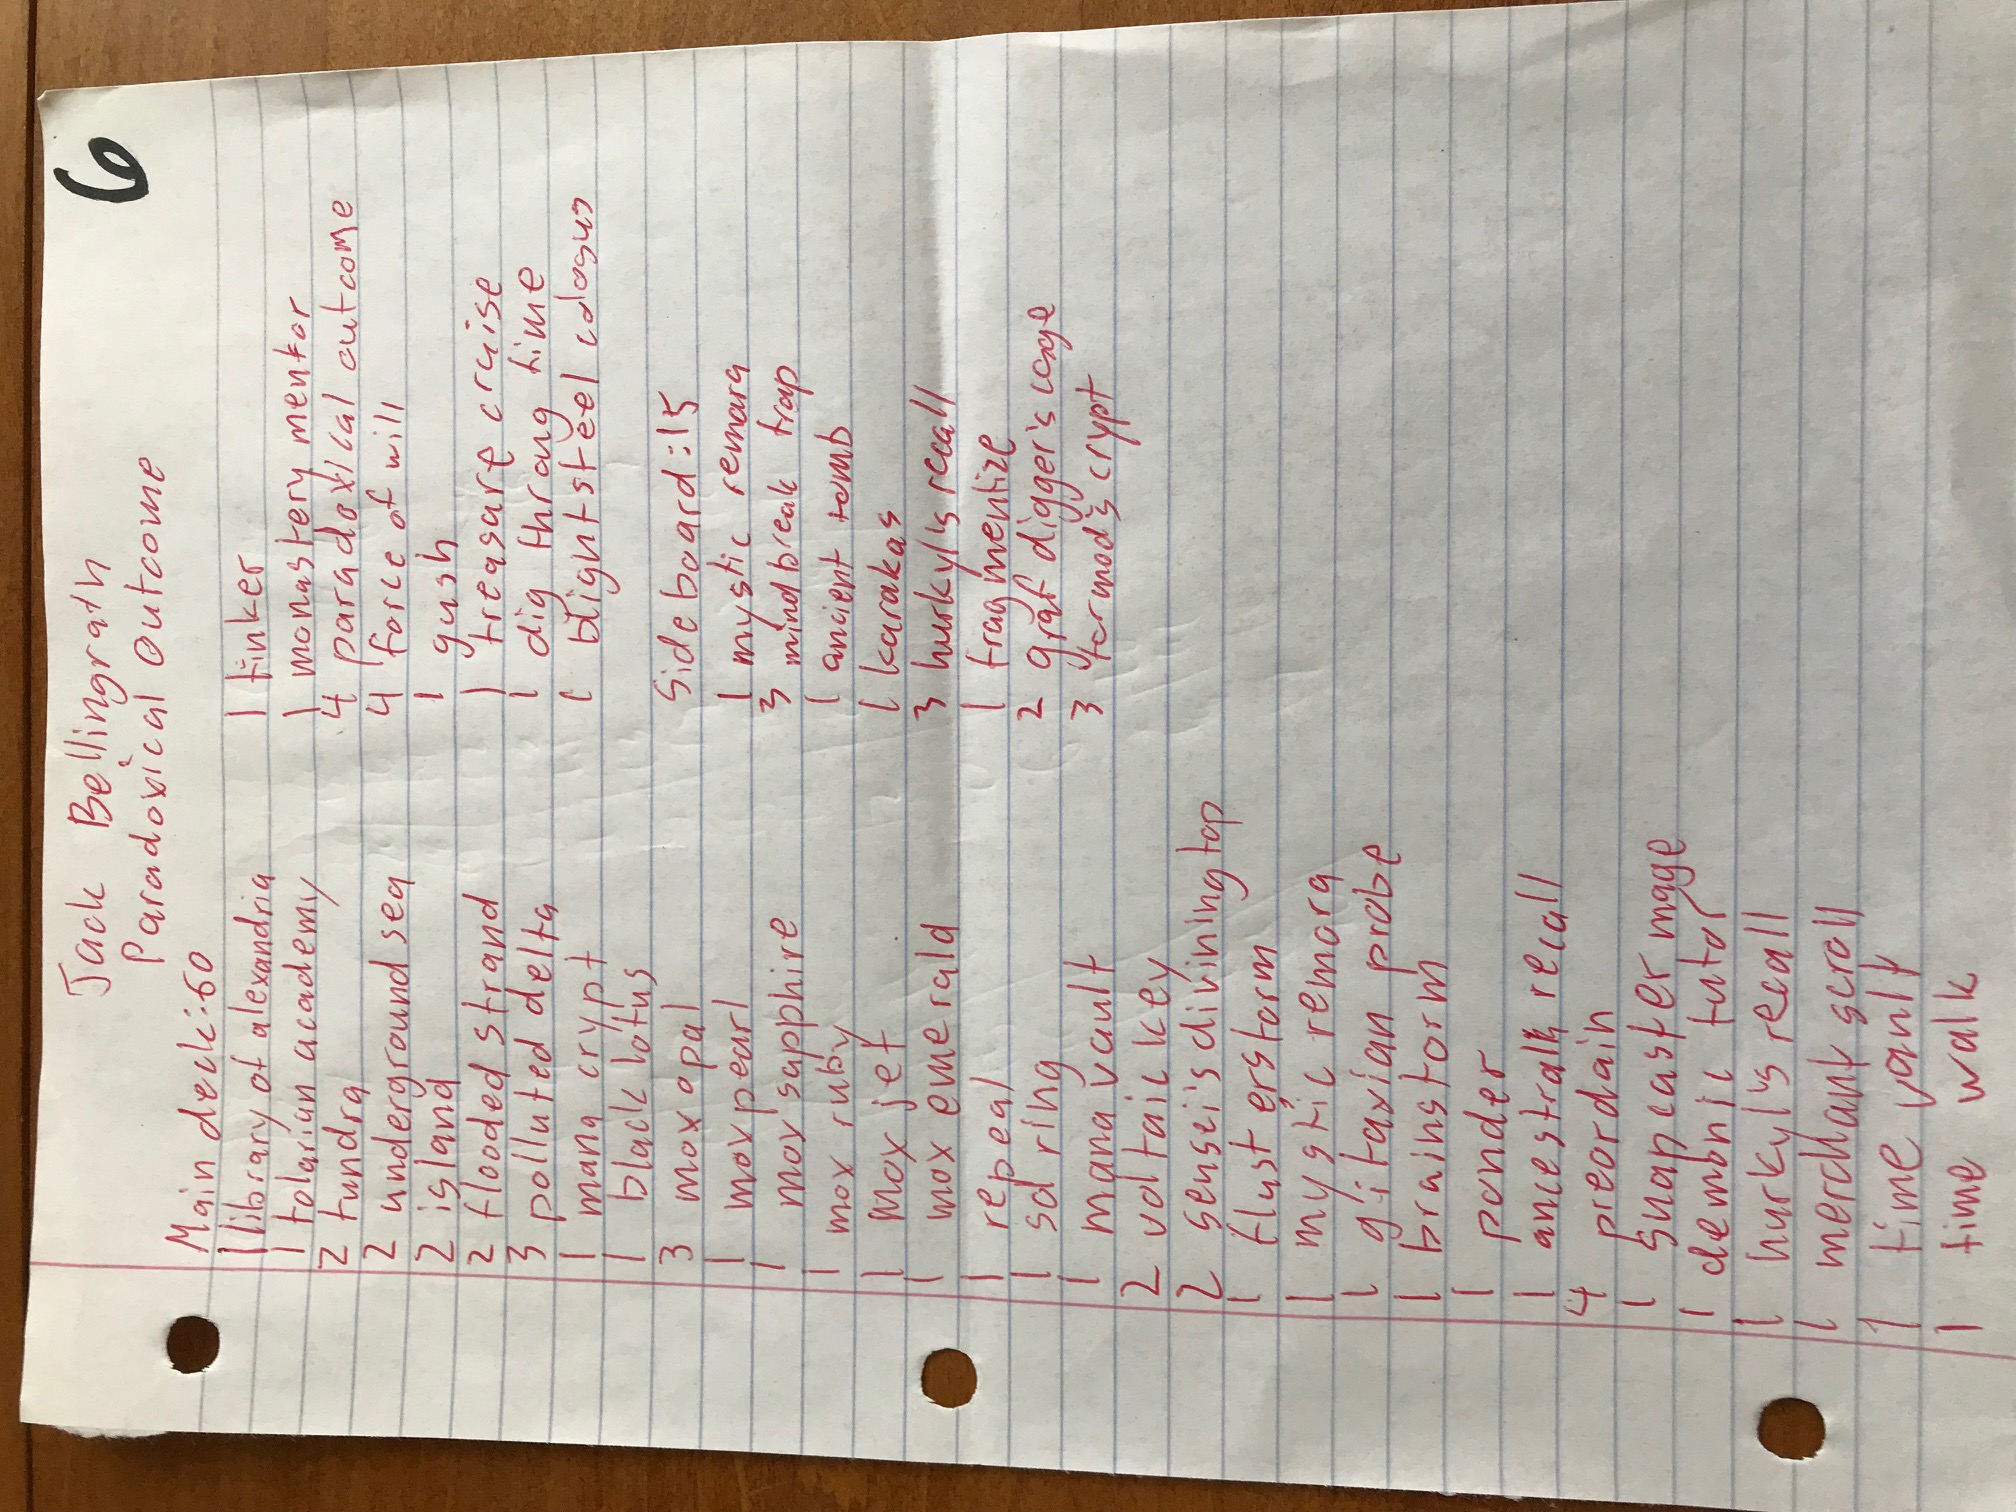 Jack Bellingrath
6
Paradoxical Outcome
Main deck:60
1 library of alexandria
1 tolarian academy
2 tundra
2 underground sea
2 island
2 flooded strand
3 polluted delta
1 mana crypt
1 black lotus
3 mox opal
1 mox pearl
1 mox sapphire
1 mox ruby
1 mox jet
1 mox emerald
1 repeal
1 sol ring
1 mana vault
2 voltaic key
2 sensei's divining top
1 flusterstorm
1 mystic remora
1 gitaxian probe
1 brainstorm
1 ponder
1 ancestral recall
4 preordain
1 snapcaster mage
1 demonic tutor
1 hurkyl's recall
1 merchant scroll
1 time vault
1 time walk
1 tinker
1 monastery mentor
4 paradoxical outcome
4 force of will
1 gush
1 treasure cruise
1 dig throug time
1 blightsteel colosus
Sideboard:15
1 mystic remora
3 mindbreak trap
1 ancient tomb
1 karakas
3 hurkyl's recall
1 fragmentize
2 graf digger's cage
3 tormod's crypt